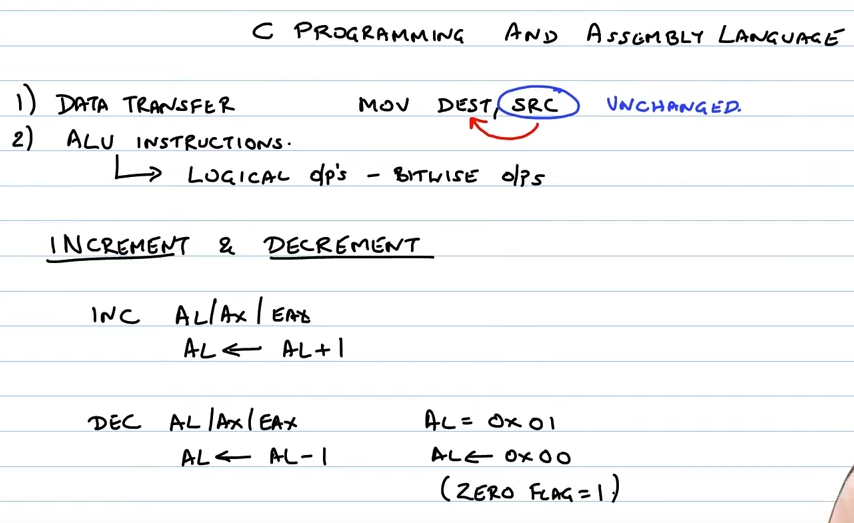 C PROGRAMMING AND ASSEMBLY LANGUAGE
1) DATA TRANSFER MOV DEST, SRC UNCHANGED.
2) ALU INSTRUCTIONS.
↳ LOGICAL o/p's - BITWISE o/ps
INCREMENT & DECREMENT
INC AL/AX/EAX
AL ← AL+1
DEC AL/AX/EAX AL = 0x01
AL ← AL-1 AL ← 0x00
(ZERO FLAG=1.)